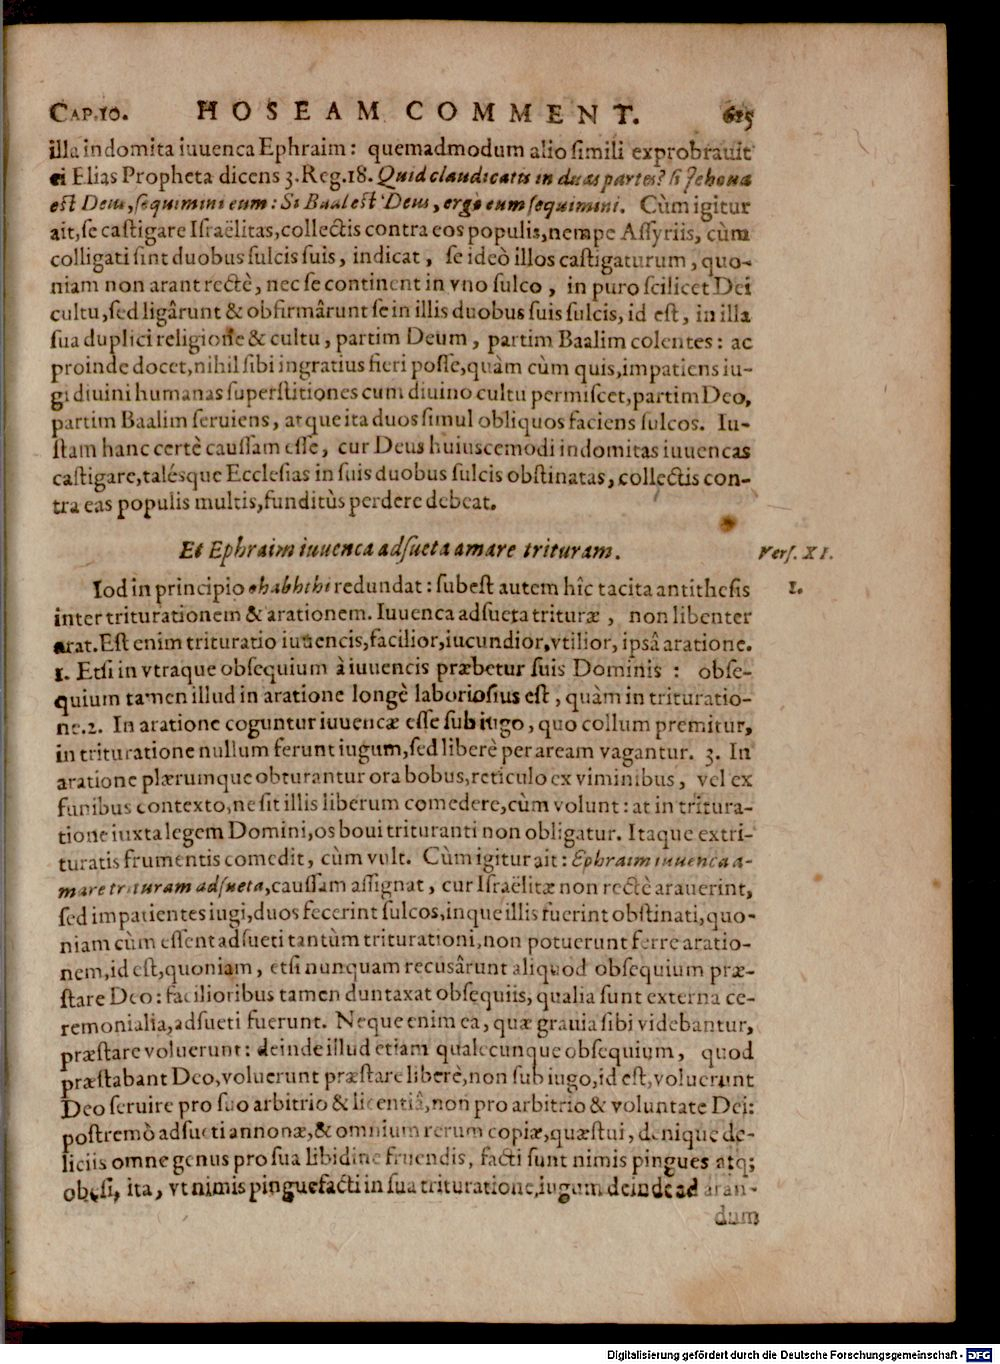 CAP. 10. HOSEAM COMMENT. 615
illa indomita iuuenca Ephraim: quemadmodum alio simili exprobrauit
ei Elias Propheta dicens 3. Reg. 18. Quid claudicatis in duas partes? si Jehoua
est Deus, sequimini eum: Si Baal est Deus, ergo eum sequimini. Cùm igitur
ait, se castigare Israëlitas, collectis contra eos populis, nempe Assyriis, cùm
colligati sint duobus sulcis suis, indicat, se ideò illos castigaturum, quo-
niam non arant rectè, nec se continent in vno sulco, in puro scilicet Dei
cultu, sed ligârunt & obfirmârunt se in illis duobus suis sulcis, id est, in illa
sua duplici religione & cultu, partim Deum, partim Baalim colentes: ac
proinde docet, nihil sibi ingratius fieri posse, quàm cùm quis, impatiens iu-
gi diuini humanas superstitiones cum diuino cultu permiscet, partim Deo,
partim Baalim seruiens, atque ita duos simul obliquos faciens sulcos. Iu-
stam hanc certè caussam esse, cur Deus huiuscemodi indomitas iuuencas
castigare, talésque Ecclesias in suis duobus sulcis obstinatas, collectis con-
tra eas populis multis, funditùs perdere debeat.
Et Ephraim iuuenca adsueta amare trituram. Vers. XI.
Iod in principio ohabhthi redundat: subest autem hîc tacita antithesis 1.
inter triturationem & arationem. Iuuenca adsueta trituræ, non libenter
arat. Est enim trituratio iuuencis, facilior, iucundior, vtilior, ipsâ aratione.
1. Etsi in vtraque obsequium à iuuencis præbetur suis Dominis: obse-
quium tamen illud in aratione longè laboriosius est, quàm in trituratio-
ne. 2. In aratione coguntur iuuencæ esse sub iugo, quo collum premitur,
in trituratione nullum ferunt iugum, sed liberè per aream vagantur. 3. In
aratione plærumque obturantur ora bobus, reticulo ex viminibus, vel ex
funibus contexto, ne sit illis liberum comedere, cùm volunt: at in tritura-
tione iuxta legem Domini, os boui trituranti non obligatur. Itaque ex tri-
turatis frumentis comedit, cùm vult. Cùm igitur ait: Ephraim iuuenca a-
mare trituram adsueta, caussam assignat, cur Israëlitæ non rectè arauerint,
sed impatientes iugi, duos fecerint sulcos, inque illis fuerint obstinati, quo-
niam cùm essent adsueti tantùm triturationi, non potuerunt ferre aratio-
nem, id est, quoniam, etsi nunquam recusârunt aliquod obsequium præ-
stare Deo: facilioribus tamen duntaxat obsequiis, qualia sunt externa ce-
remonialia, adsueti fuerunt. Neque enim ea, quæ grauia sibi videbantur,
præstare voluerunt: deinde illud etiam qualecunque obsequium, quod
præstabant Deo, voluerunt præstare liberè, non sub iugo, id est, voluerunt
Deo seruire pro suo arbitrio & licentiâ, non pro arbitrio & voluntate Dei:
postremò adsueti annonæ, & omnium rerum copiæ, quæstui, denique de-
liciis omne genus pro sua libidine fruendis, facti sunt nimis pingues atq;
obesi, ita, vt nimis pinguefacti in sua trituratione, iugum deinde ad aran-
dum
Digitalisierung gefördert durch die Deutsche Forschungsgemeinschaft - DFG